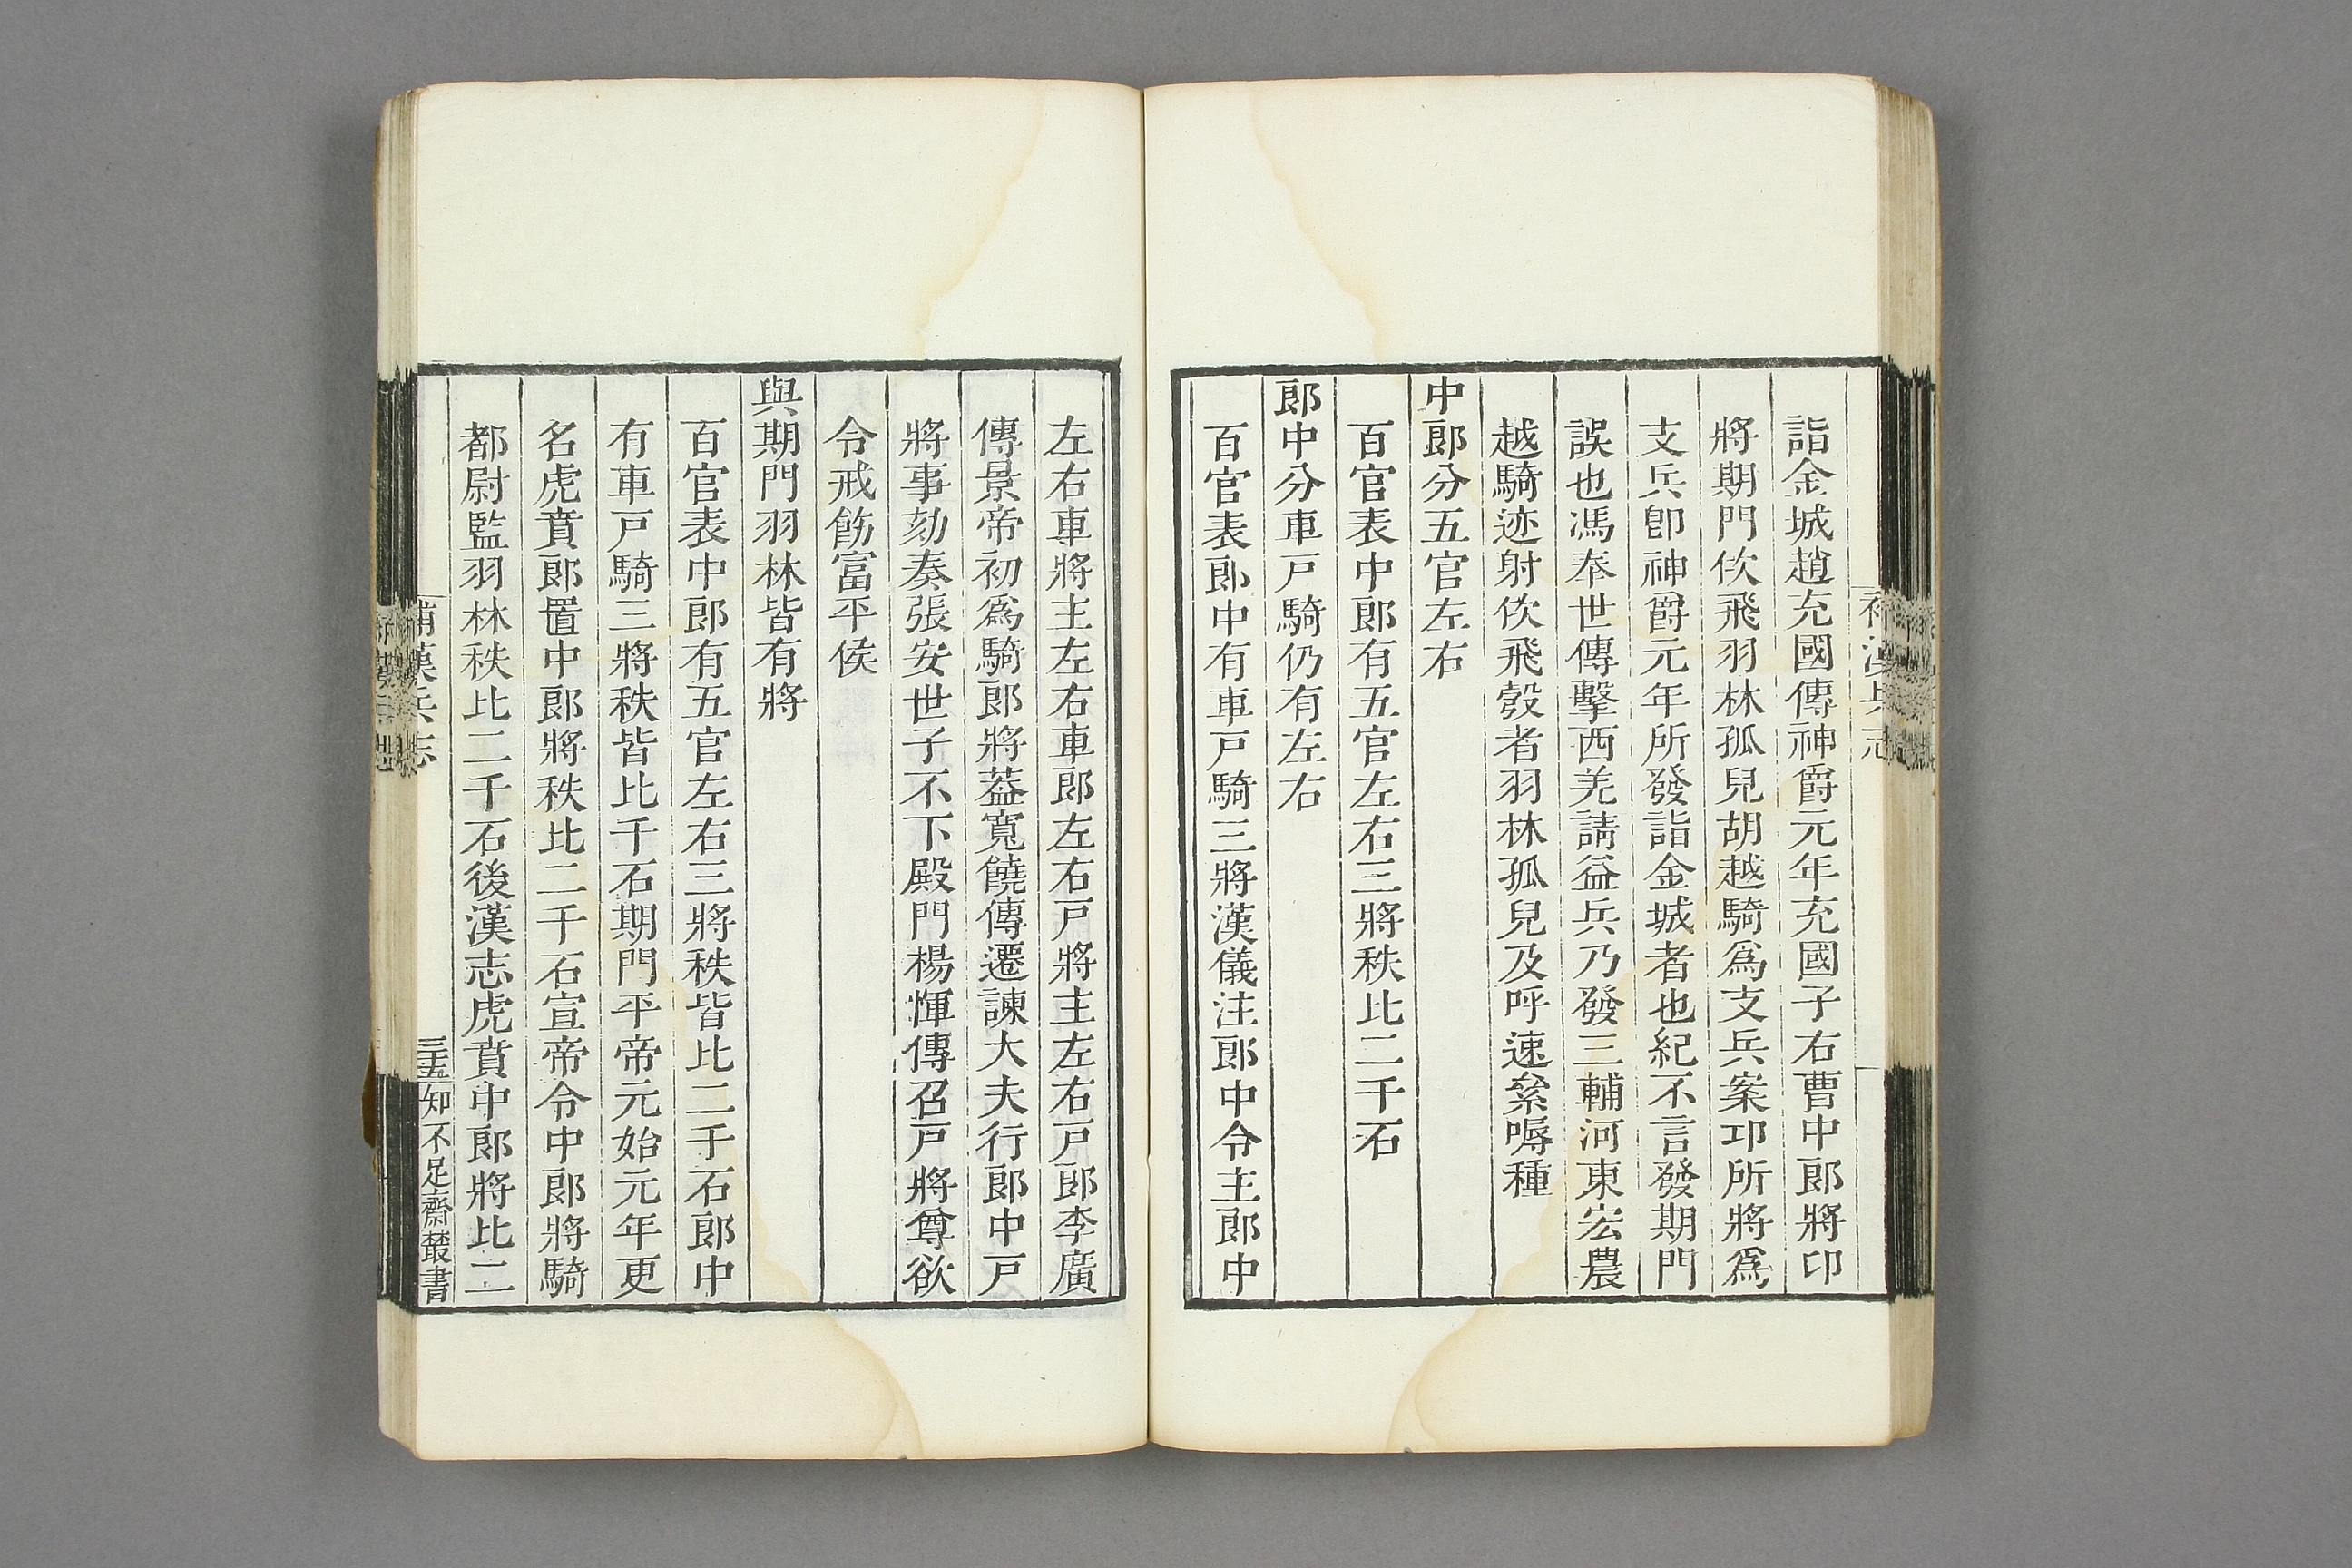 補漢兵志
詣金城趙充國傳神爵元年充國子右曹中郎將卬
將期門佽飛羽林孤兒胡越騎爲支兵案卬所將爲
支兵卽神爵元年所發詣金城者也紀不言發期門
誤也馮奉世傳擊西羌請益兵乃發三輔河東宏農
越騎迹射佽飛彀者羽林孤兒及呼速絫嗕種
中郎分五官左右
百官表中郎有五官左右三將秩比二千石
郎中分車戸騎仍有左右
百官表郎中有車戸騎三將漢儀注郎中令主郎中
左右車將主左右車郎左右戸將主左右戸郎李廣
傳景帝初爲騎郎將葢寬饒傳遷諫大夫行郎中戸
將事劾奏張安世子不下殿門楊惲傳召戸將尊欲
令戒飭富平侯
與期門羽林皆有將
百官表中郎有五官左右三將秩皆比二千石郎中
有車戸騎三將秩皆比千石期門平帝元始元年更
名虎賁郎置中郎將秩比二千石宣帝令中郎將騎
都尉監羽林秩比二千石後漢志虎賁中郎將比二
補漢兵志 三五 知不足齋叢書